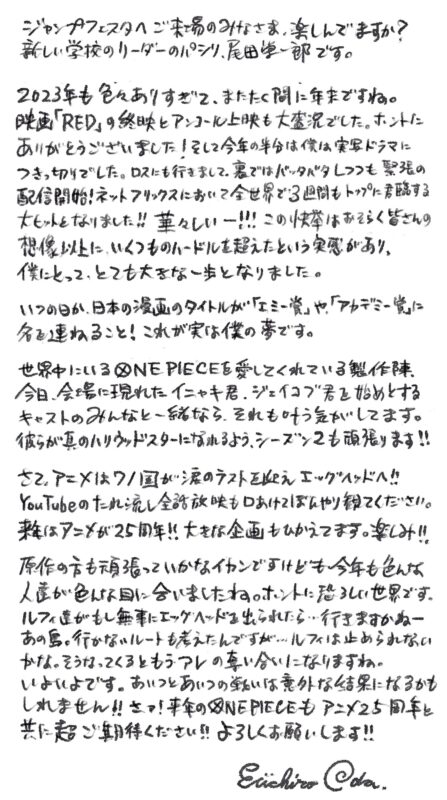 ジャンプフェスタへご来場のみなさま、楽しんでますか?
新しい学校のリーダーのパシリ、尾田栄一郎です。
2023年も色々ありすぎて、またたく間に年末ですね。
映画「RED」の終映とアンコール上映も大盛況でした。ホントに
ありがとうございました!そして今年の半分は僕は実写ドラマに
つきっ切りでした。ロスにも行きまして、裏ではバッタバタしつつも緊張の
配信開始!ネットフリックスにおいて全世界で3週間もトップに君臨する
大ヒットとなりました!!華々しいー!!!この快挙はおそらく皆さんの
想像以上に、いくつものハードルを超えたという実感があり、
僕にとって、とても大きな一歩となりました。
いつの日か、日本の漫画のタイトルが「エミー賞」や、「アカデミー賞」に
名を連ねること!これが実は僕の夢です。
世界中にいるONE PIECEを愛してくれている製作陣、
今日、会場に現れたイニャキ君、ジェイコブ君を始めとする
キャストのみんなと一緒なら、それも叶う気がしてます。
彼らが真のハリウッドスターになれるよう、シーズン2も頑張ります!!
さて、アニメはワノ国が涙のラストを迎えエッグヘッドへ!!
YouTubeのたれ流し全話放映も口あけてぼんやり観てください。
来年はアニメが25周年!!大きな企画もひかえてます。楽しみ!!
原作の方も頑張っていかなイカンですけども今年も色んな
人達が色んな目に会いましたね。ホントに恐ろしい世界です。
ルフィ達がもし無事にエッグヘッドを出られたら…行きますかねー
あの島。行かないルートも考えたんですが…ルフィは止められない
かな。そうなってくるともうアレの奪い合いになりますね。
いよいよです。あいつとあいつの戦いは意外な結果になるかも
しれません!!さァ!来年のONE PIECEもアニメ25周年と
共に超ご期待ください!!よろしくお願いします!!
Eiichiro Oda.